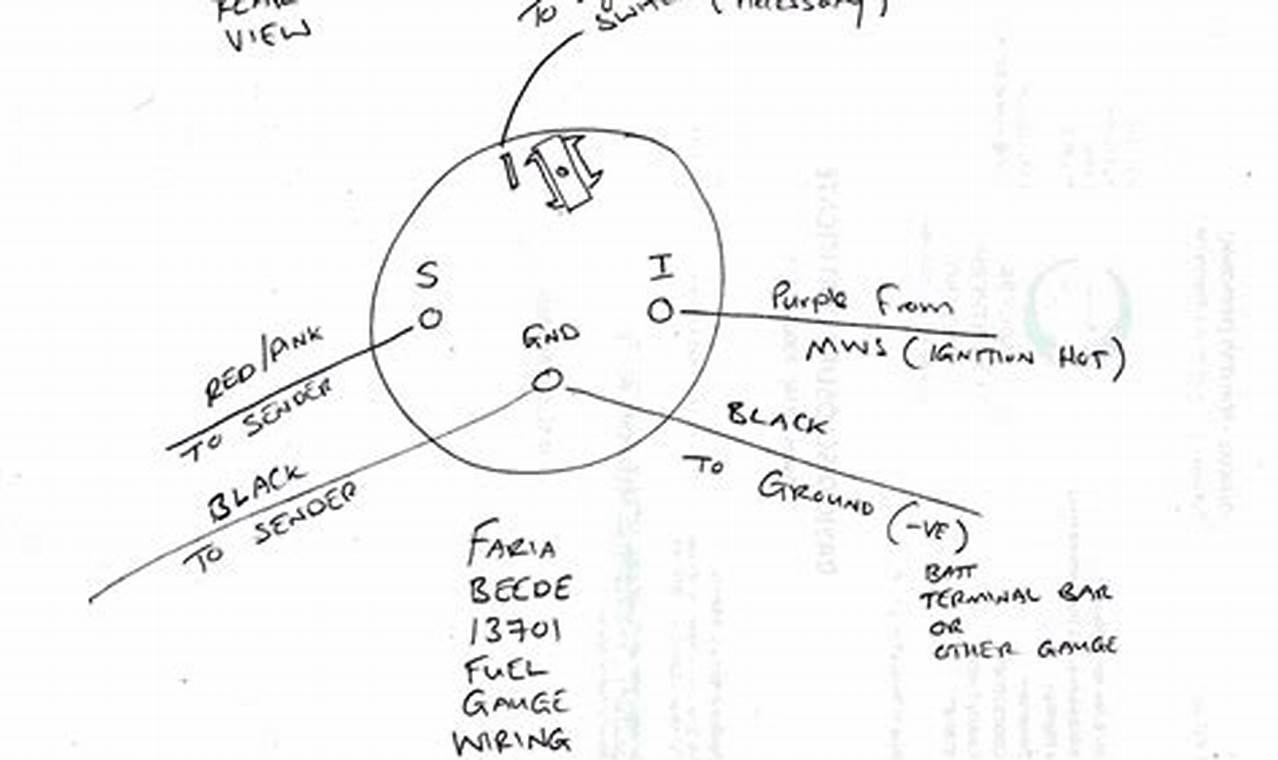 REAR
VIEW
TO
(ACCESSORY)
S
I
GND
RED/PINK
TO SENDER
BLACK
TO SENDER
Purple From
MWS (IGNITION HOT)
BLACK
TO GROUND (-VE)
BATT
TERMINAL BAR
OR
OTHER GAUGE
FARIA
BEEDE
13701
FUEL
GAUGE
WIRING